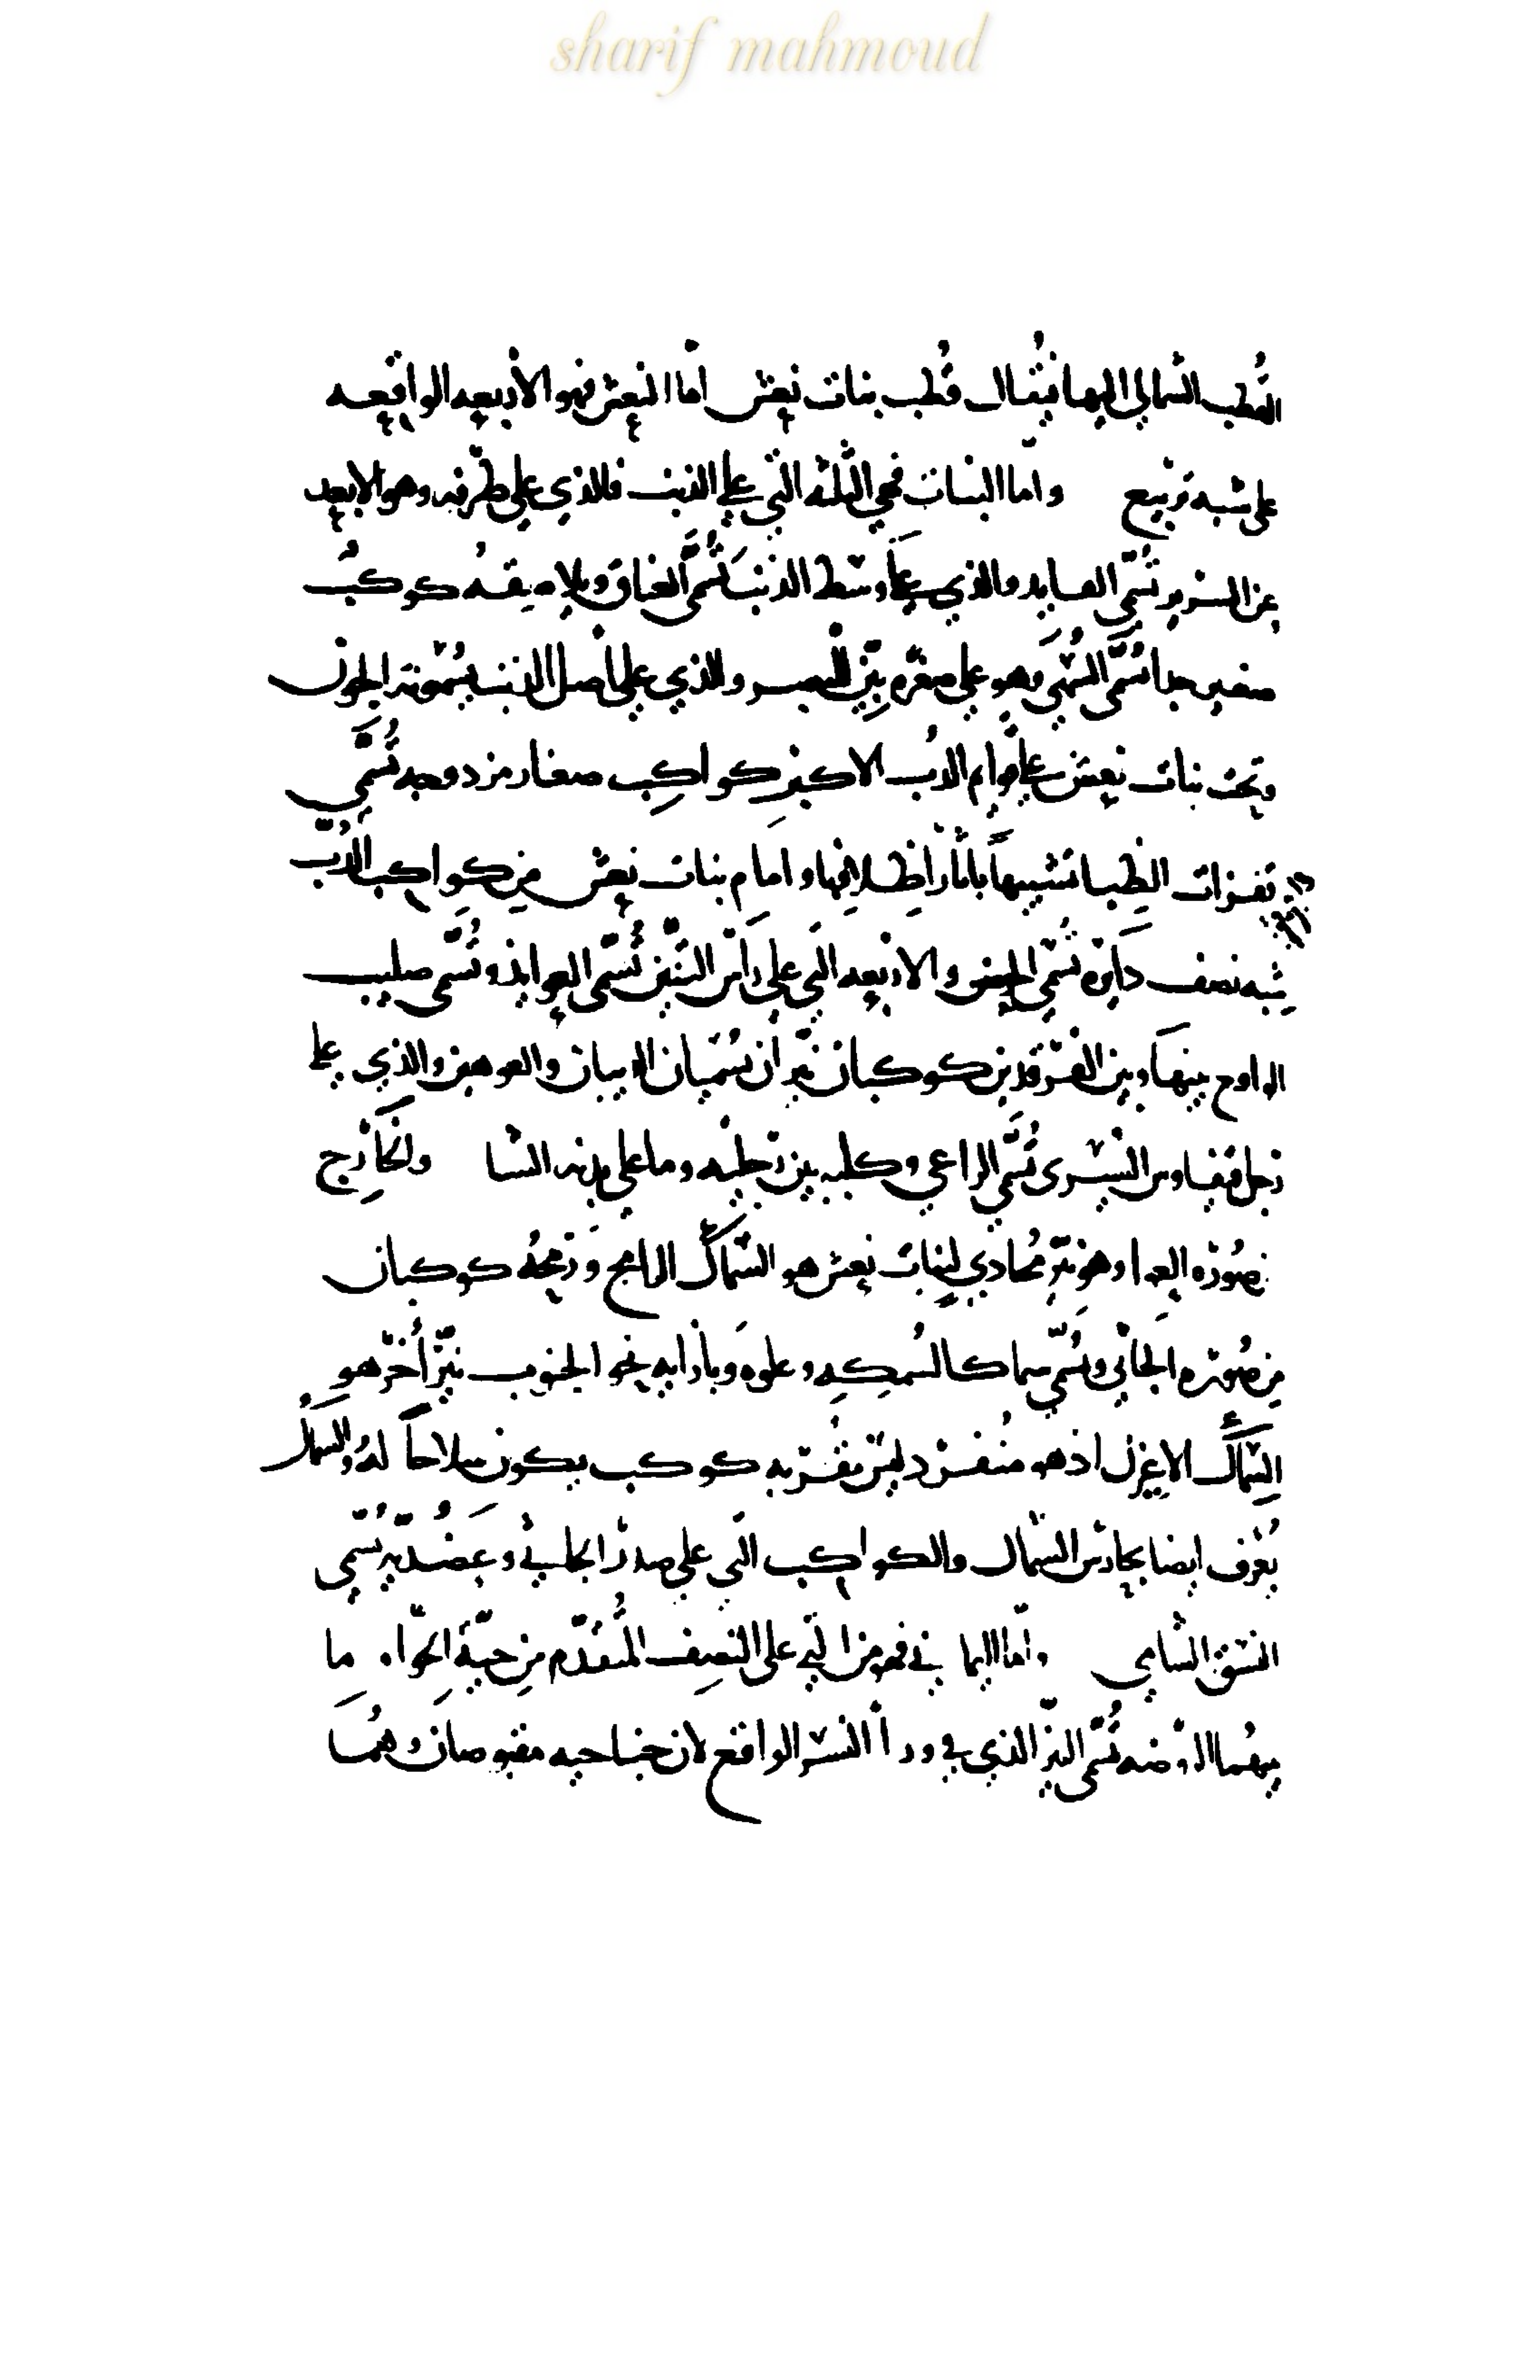 sharif mahmoud
القُطب الشمالي اليها فيُقال قُطب بنات نعش امّا النعش فهو الأربعه الواقعه
على شبه تربيع وامّا البنات فهي الثلثه التي على الذنب فالذي على طرفه وهو الابعد
عن السرير تُسمّى القايد والذي على وسَط الذنب تُسمَّى العناق ويلاصقهُ كوكبُ
صغير جدا تُسمَّى السُهَى وهو على صغره بيّن للبصر والذي على أصل الذنب يُسمّونه الجون
وتحت بنات نعش على قوايم الدُب الاكبر كواكب صغار مزدوجه تُسَمَّى
نفزات الظِبا تشبيهاً بأثار اظلافها وامام بنات نعش من كواكب الدُبّ
شِبه نصف دَايره تُسَمّى الحوض والاربعه التي على رأس التنّين تُسمّى العوايذ وتُسمّى صليب
الواقع بينهَا وبين الفرقدين كوكبان نيّران تُسمّيان الذيبان والعوهقين والذي على
رجل قيقاوس اليُسرى تُسَمَّى الراعي وكلبه بين رجليه وما على بدنه الشا والخَارِج
من صُورَه العوا وهو نيّر مُحاذي لبنات نعش هو السّماكُ الرامح وَرُمحُهُ كوكبان
مِن صُورَه الجاثي وتُسمّى سماكا لسُمكه وعلوه وبازايه نحو الجنوب نيّر أُخَر هو
السِّمَاكُ الاعزل اذ هو مُنفرد ليسَ بقُربه كوكب يكون سلاحاً لهُ والسماك
يُعرف ايضا بحارس الشمال والكواكب التي على صدر الجاثي وعَضُدَيه تُسَمّى
النسق الشامي وامّا اليماني فهو من التي على النصِف المُتقدّم مِن حيّة الحِوّاء ما
بينهُما الروضه تُسمّى النيّر الذي في وراأ النسر الواقع لان جناحيه مقبوصان وهُمَا